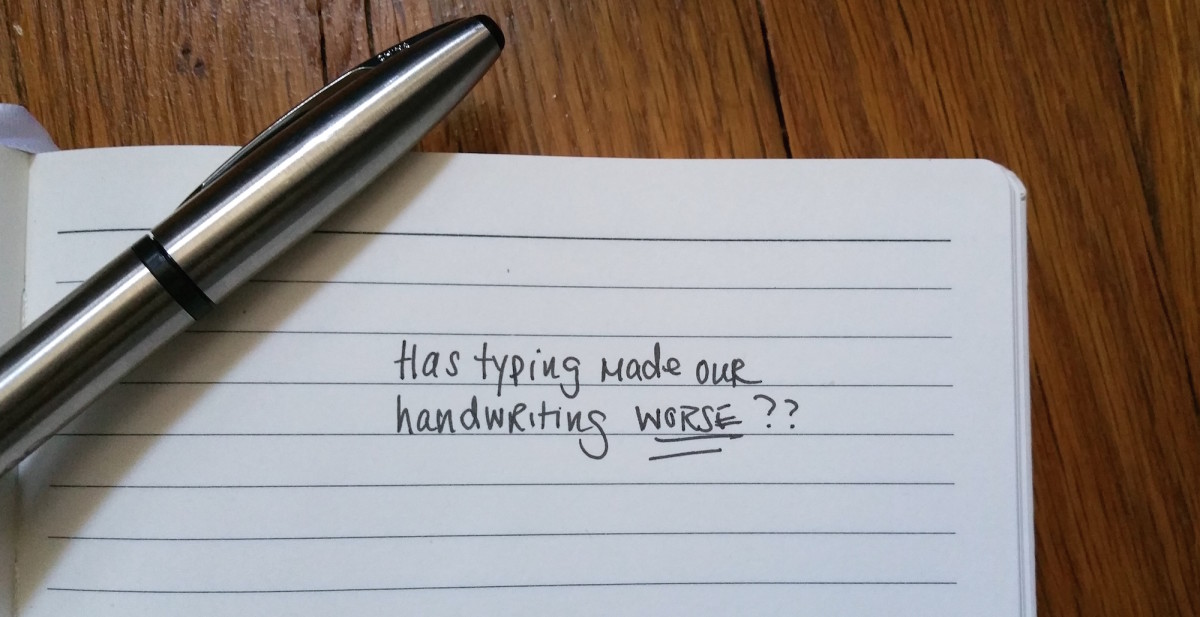 Has typing made our
handwriting WORSE ??